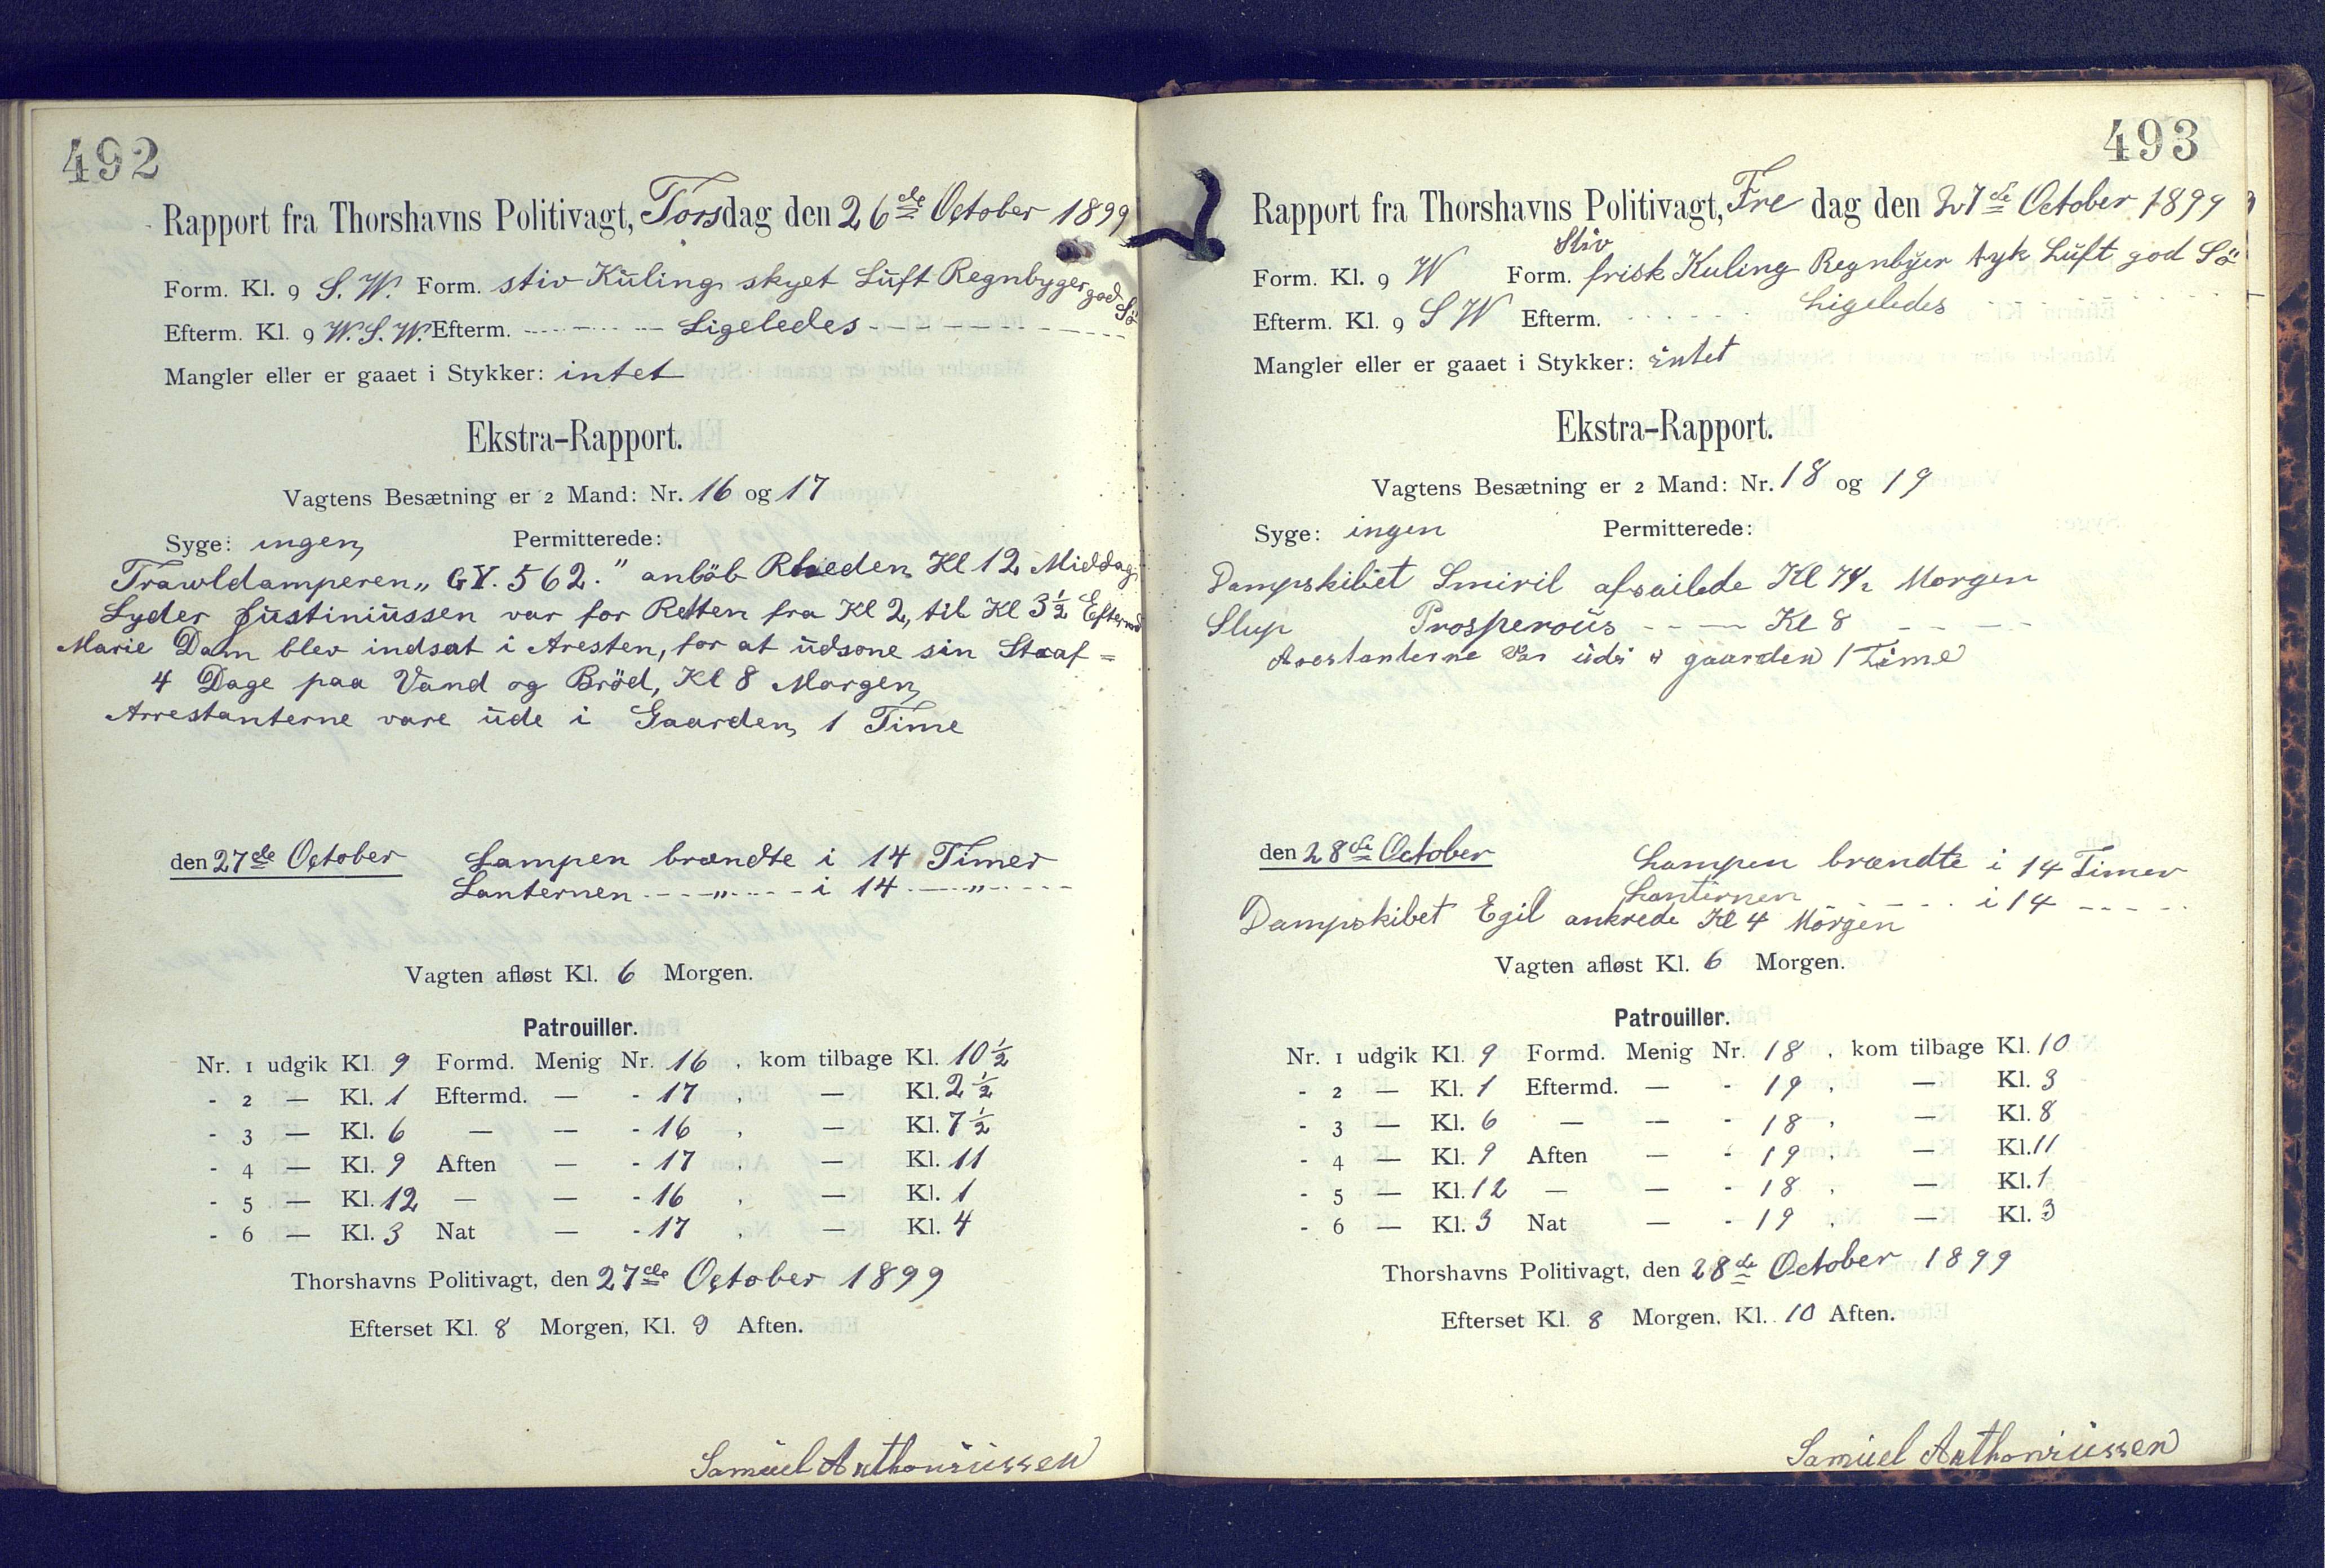 492
Rapport fra Thorshavns Politivagt, Torsdag den 26de October 1899
Form. Kl. 9 S. W. Form. stiv Kūling skyet Lūft Regnbyger god Sö
Efterm. Kl. 9 W. S. W. Efterm. - - - - - - Ligeledes - - - - - - -
Mangler eller er gaaet i Stykker: intet
Ekstra-Rapport.
Vagtens Besætning er 2 Mand: Nr. 16 og 17
Syge: ingen Permitterede:
Trawldamperen „GY. 562." anlöb Rheden Kl 12 Middag
Lyder Jūstiniūssen var for Retten fra Kl 2, til Kl 3½ Eftermd
Marie Dam blev indsat i Aresten, for at ūdsone sin Straf =
4 Dage paa Vand og Bröd, Kl 8 Morgen
Arrestanterne vare ūde i Gaarden 1 Time
den 27de October Lampen brændte i 14 Timer
Lanternen - - - „ - - - i 14 - - „ - - -
Vagten afløst Kl. 6 Morgen.
Patrouiller.
Nr. 1 udgik Kl. 9 Formd. Menig Nr. 16 , kom tilbage Kl. 10½
- 2 — Kl. 1 Eftermd. — - 17 , — Kl. 2½
- 3 — Kl. 6 — — - 16 , — Kl. 7½
- 4 — Kl. 9 Aften — - 17 , — Kl. 11
- 5 — Kl. 12 — — - 16 , — Kl. 1
- 6 — Kl. 3 Nat — - 17 , — Kl. 4
Thorshavns Politivagt, den 27de October 1899
Efterset Kl. 8 Morgen, Kl. 9 Aften.
Samūel Anthoniūssen
493
Rapport fra Thorshavns Politivagt, Fredag den 27de October 1899
Stiv
Form. Kl. 9 W Form. frisk Kuling Regnbÿer tyk Lūft god Sö
Efterm. Kl. 9 S W Efterm. - - - - - Ligeledes - - - - -
Mangler eller er gaaet i Stykker: intet
Ekstra-Rapport.
Vagtens Besætning er 2 Mand: Nr. 18 og 19
Syge: ingen Permitterede:
Dampskibet Smiril afsailede Kl 7½ Morgen
Slup Prosperoūs - - - - Kl 8 - - - -
Arestanterne var ūde i gaarden 1 Time
den 28de October Lampen brændte i 14 Timer
Lanternen - - - - i 14 - - - -
Dampskibet Egil ankrede Kl 4 Morgen
Vagten afløst Kl. 6 Morgen.
Patrouiller.
Nr. 1 udgik Kl. 9 Formd. Menig Nr. 18 , kom tilbage Kl. 10
- 2 — Kl. 1 Eftermd. — - 19 , — Kl. 3
- 3 — Kl. 6 — — - 18 , — Kl. 8
- 4 — Kl. 9 Aften — - 19 , — Kl. 11
- 5 — Kl. 12 — — - 18 , — Kl. 1
- 6 — Kl. 3 Nat — - 19 , — Kl. 3
Thorshavns Politivagt, den 28de October 1899
Efterset Kl. 8 Morgen, Kl. 10 Aften.
Samūel Anthoniūssen